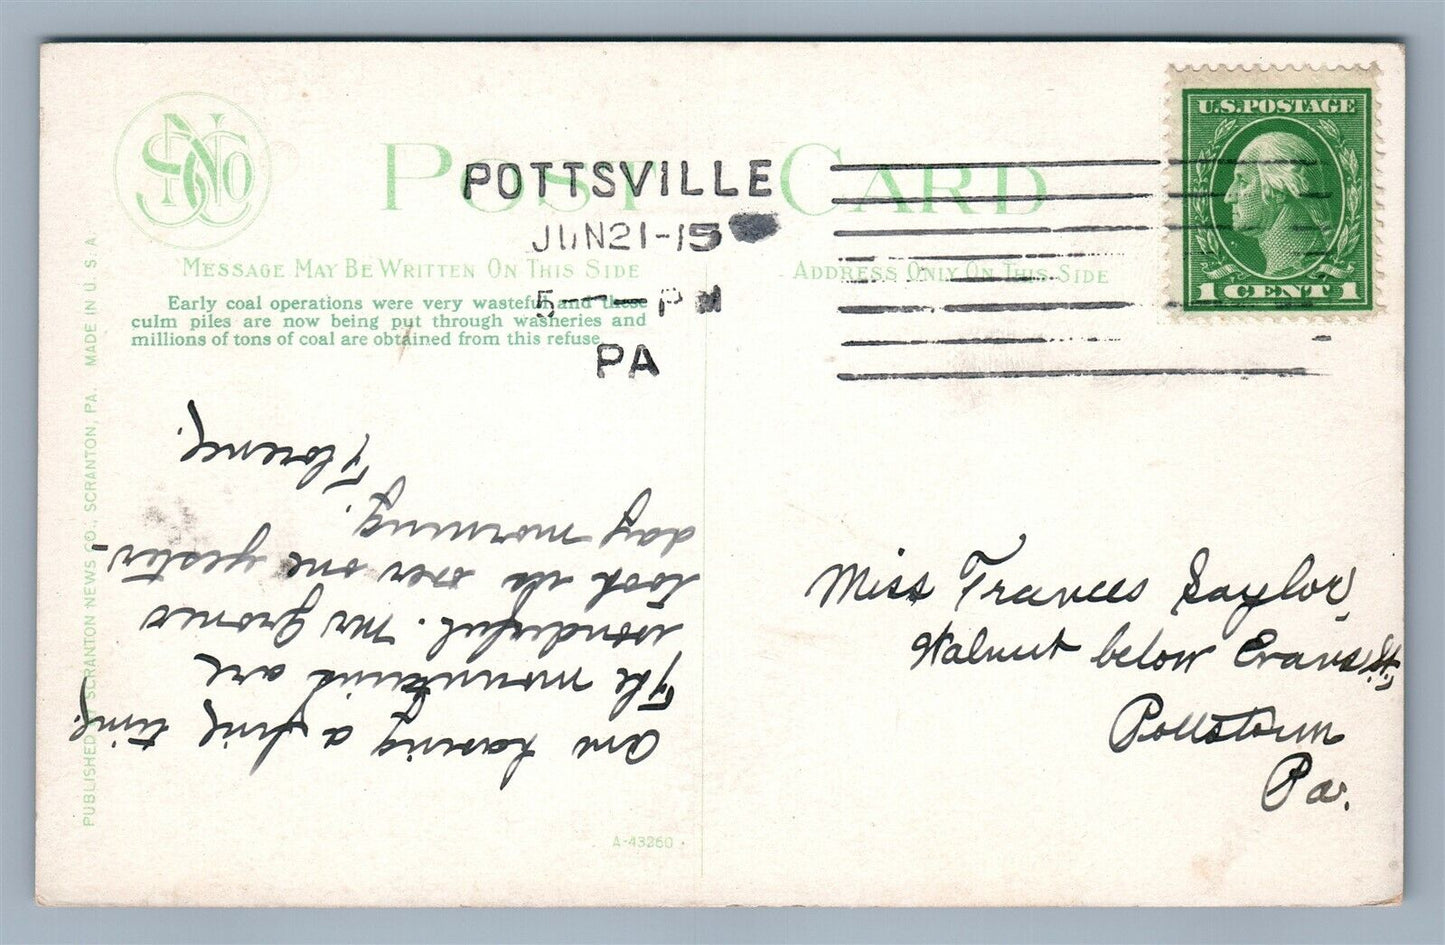 SNCo
POST CARD
POTTSVILLE
JUN21-15
5— PM
PA
U.S. POSTAGE
1 CENT 1
MESSAGE MAY BE WRITTEN ON THIS SIDE
ADDRESS ONLY ON THIS SIDE
Early coal operations were very wasteful and these
culm piles are now being put through washeries and
millions of tons of coal are obtained from this refuse.
Are having a fine time.
The mountains are
wonderful. Mr
took us over one yester-
day morning.
Florence.
Miss Frances Saylor,
Walnut below Evans St.,
Pottstown
Pa.
A-43260
PUBLISHED BY SCRANTON NEWS CO., SCRANTON, PA. MADE IN U. S. A.